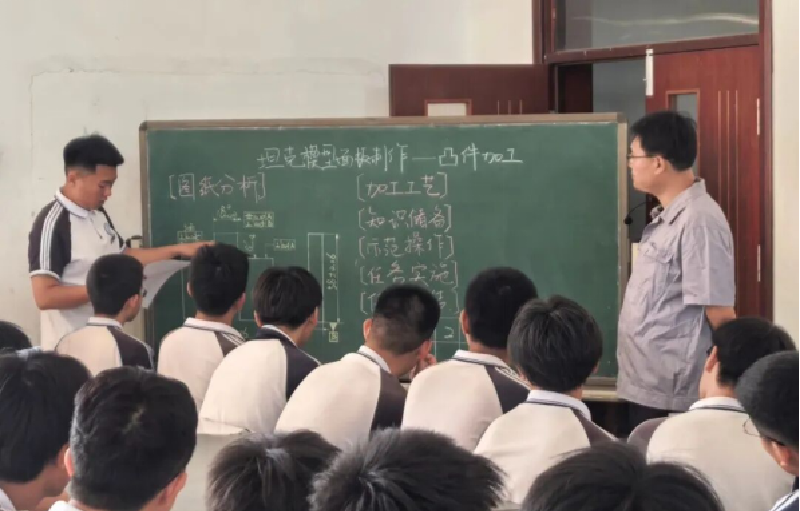 坦克模型面板制作—凸件加工
[图纸分析]
[加工工艺]
[知识储备]
[示范操作]
[任务实施]